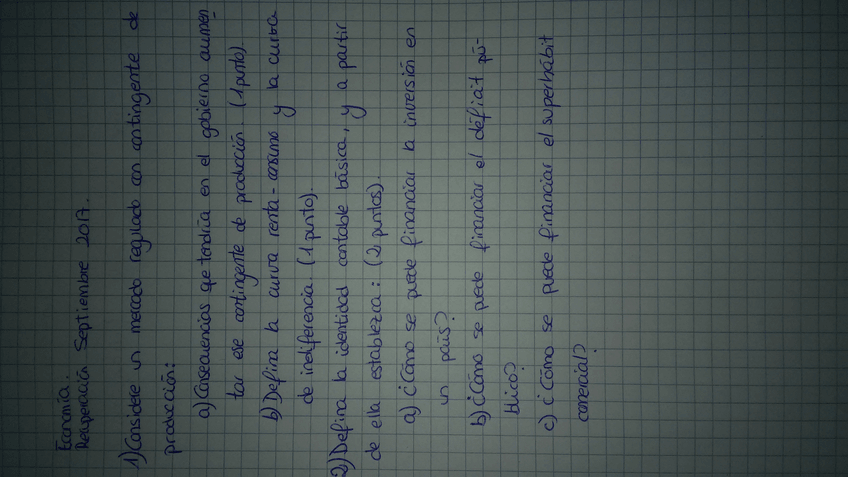 Economía.
Recuperación Septiembre 2017.
1) Considere un mercado regulado con contingente de
producción:
a) Consecuencias que tendría en el gobierno aumen
tar ese contingente de producción. (1 punto).
b) Defina la curva renta-consumo y la curva
de indiferencia. (1 punto).
2) Defina la identidad contable básica, y a partir
de ella establezca: (2 puntos).
a) ¿Cómo se puede financiar la inversión en
un país?
b) ¿Cómo se puede financiar el déficit pú-
blico?
c) ¿Cómo se puede financiar el superhábit
comercial?